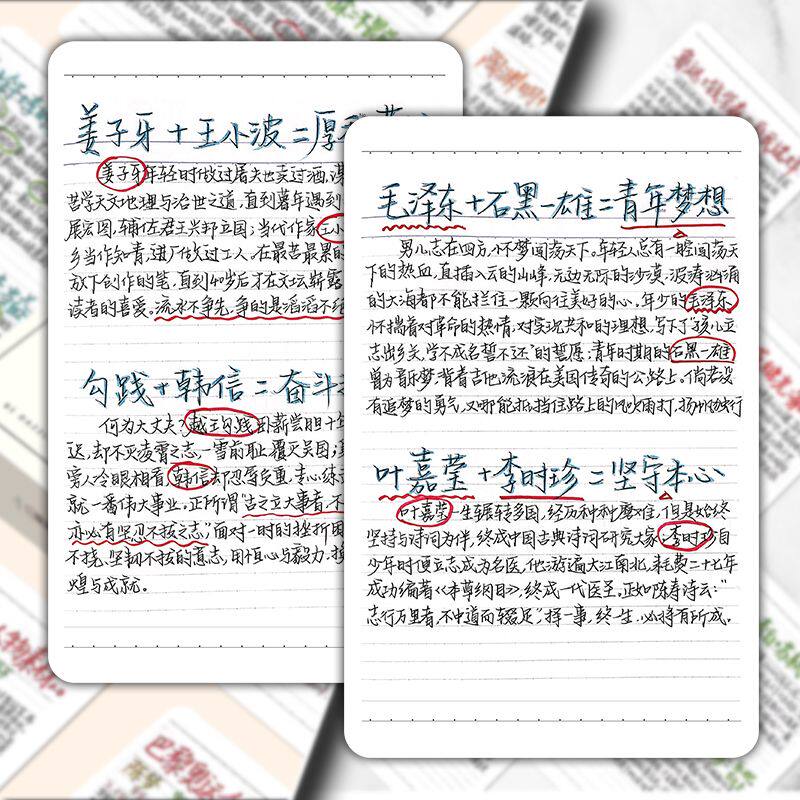 姜子牙+王小波=厚
姜子牙年轻时做过屠夫也卖过酒,
苦学天文地理与治世之道,直到暮年遇到
展宏图,辅佐君王兴邦立国;当代作家王小
乡当作知青,进厂做过工人,在最苦最累的
放下创作的笔,直到40岁后才在文坛崭露
读者的喜爱。流水不争先,争的是滔滔不绝
勾践+韩信=奋斗
何为大丈夫?越王勾践卧薪尝胆十年
迟,却不灭凌霄之志,一雪前耻,覆灭吴国;
旁人冷眼相看,韩信却忍辱负重,专心练
就一番伟大事业。正所谓“古之立大事者,不
亦必有坚忍不拔之志,”面对一时的挫折困
不挠、坚韧不拔的意志,用恒心与毅力,
煌与成就。
毛泽东+石黑一雄=青年梦想
男儿志在四方,怀梦闯荡天下。年轻人总有一瞬闯荡天
下的热血,直插入云的山峰,无边无际的沙漠,波涛汹涌
的大海都不能拦住一颗向往美好的心。年少的毛泽东
怀揣着对革命的热情,对实现共和的理想,写下了“孩儿立
志出乡关,学不成名誓不还”的誓愿;青年时期的石黑一雄
曾为音乐梦,背着吉他,流浪在美国传奇的公路上。倘若没
有追梦的勇气,又哪能抵挡住路上的风吹雨打,扬帆勃行
叶嘉莹+李时珍=坚守本心
叶嘉莹一生辗转多国,经历种种磨难,但是始终
坚持与诗词为伴,终成中国古典诗词研究大家;李时珍自
少年时便立志成为名医,他游遍大江南北,耗费二十七年
成功编著《本草纲目》,终成一代医圣。正如陈寿诗云:“
志行万里者,不中道而辍足”,择一事,终一生,必将有所成。